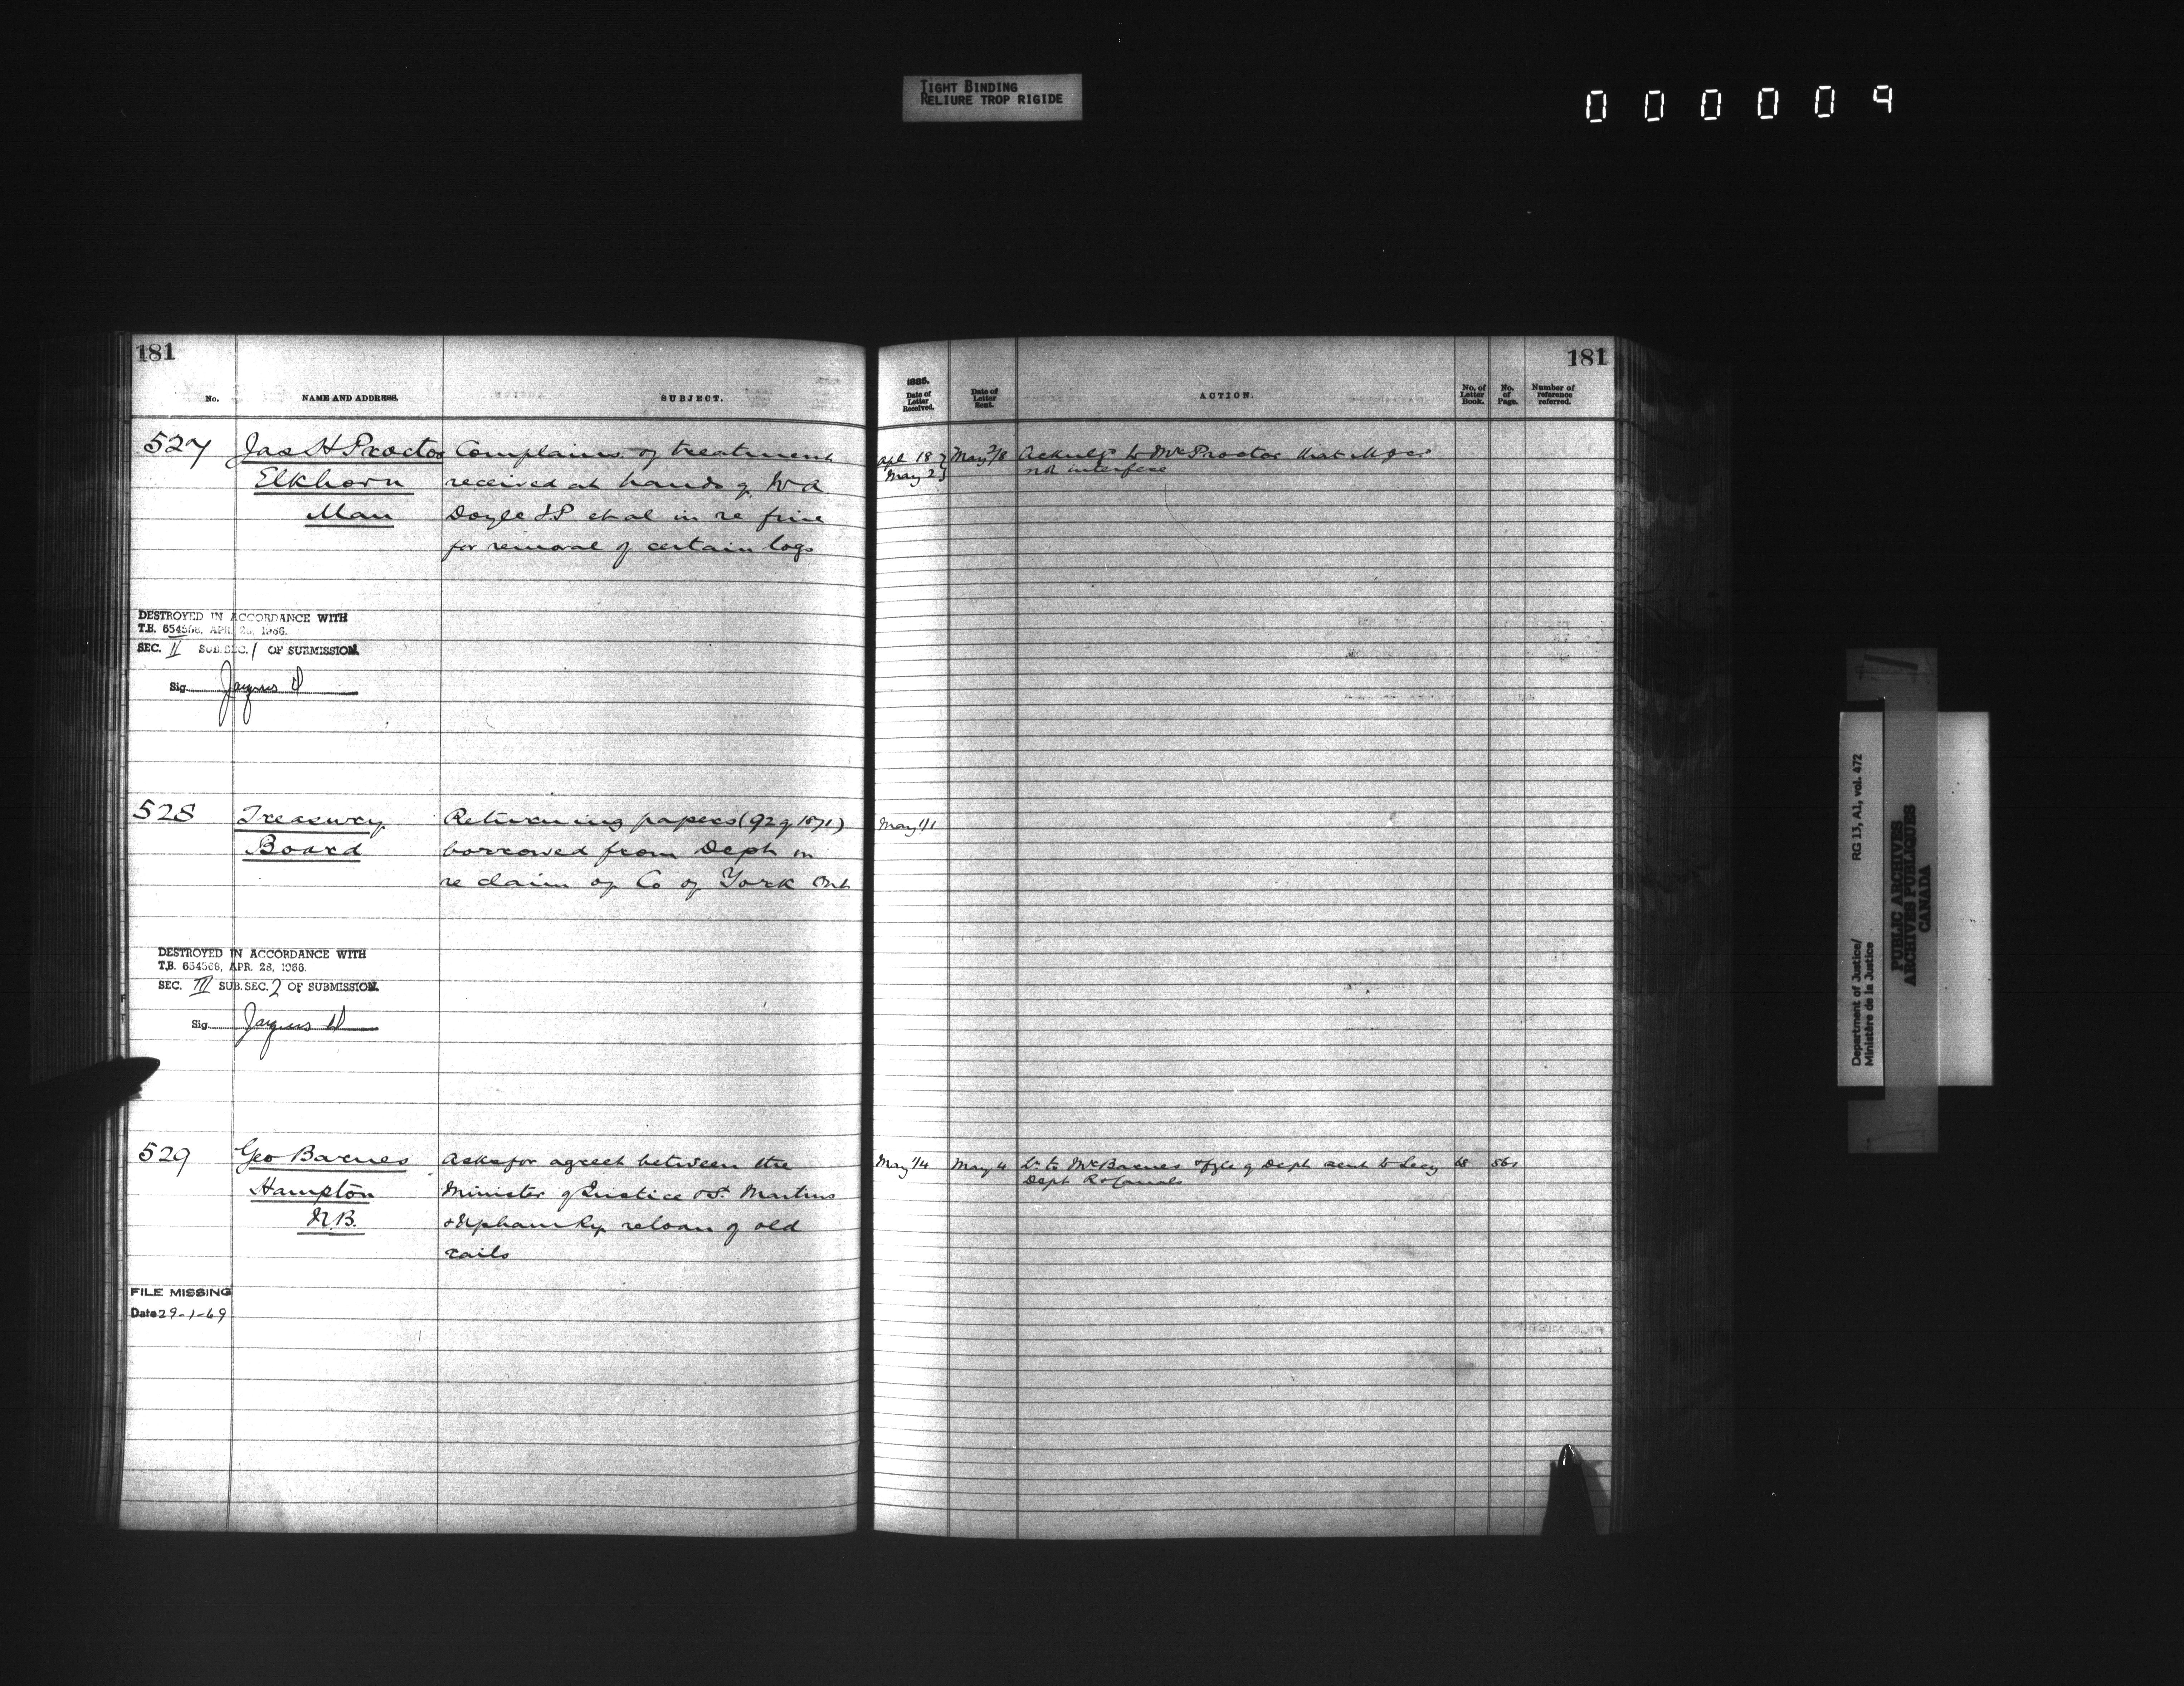 TIGHT BINDING
RELIURE TROP RIGIDE
000009
181
No.
NAME AND ADDRESS.
SUBJECT.
527
Jas H Proctor
Elkhorn
Man
Complains of treatment
received at hands of W A
Doyle J.P. et al in re fine
for removal of certain logs
DESTROYED IN ACCORDANCE WITH
T.B. 654568, APR. 28, 1966.
SEC. II SUB. SEC. 1 OF SUBMISSION.
Sig.
528
Treasury
Board
Returning papers (92 of 1871)
borrowed from Dept in
re claim of Co of York Ont
DESTROYED IN ACCORDANCE WITH
T.B. 654568, APR. 28, 1966.
SEC. III SUB. SEC. 2 OF SUBMISSION.
Sig.
529
Geo Barnes
Hampton
N.B.
Asks for agreet between the
Minister of Justice & St. Martins
& Upham Ry re loan of old
rails
FILE MISSING
Date 29-1-69
181
1885.
Date of Letter Received.
Date of Letter Sent.
ACTION.
No. of Letter Book.
No. of Page.
Number of reference referred.
Apl 18
May 2
May 2/8
to Mr Proctor that M of J can
not interfere
May 1/1
May 1/4
May 4
Lr. to Mr Barnes of Dept sent to Secy
Dept R & Canals
68
561
Department of Justice/
Ministère de la Justice
RG 13, A1, vol. 472
PUBLIC ARCHIVES
ARCHIVES PUBLIQUES
CANADA